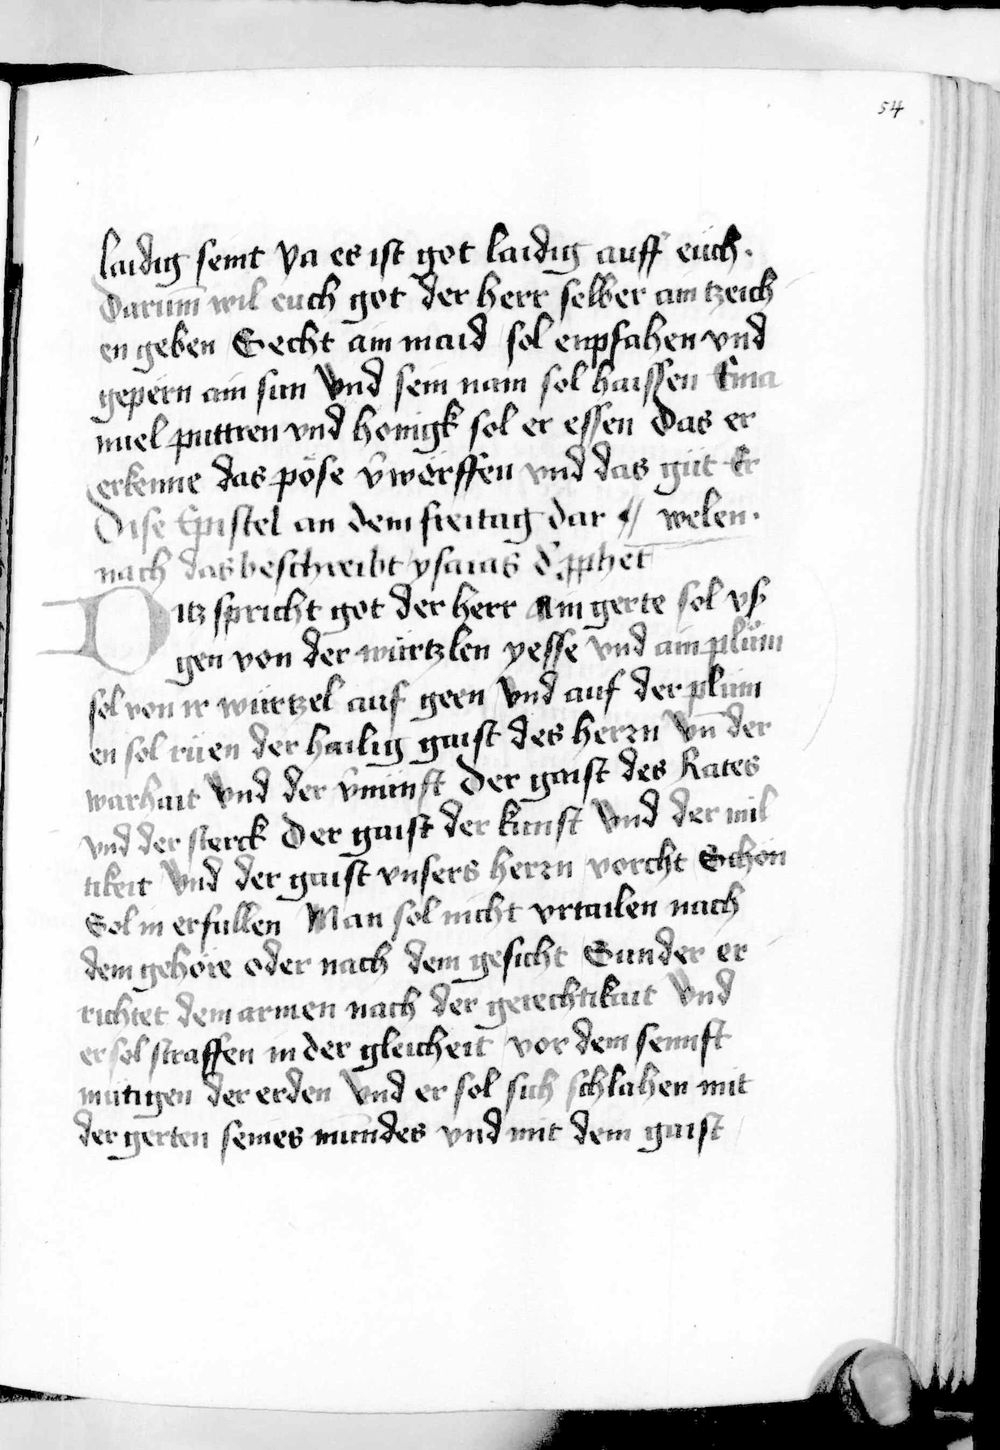 54
laidig seint Va es ist got laidig auff euch.
Darum̄ wil euch got der herr selber ain tzeich
en geben Secht ain maid sol enpfahen vnd
gepern ain sun Vnd sein nam sol haissen Ema
nuel puttren vnd honigk sol er essen Das er
erkenne das pöse v̄werffen vnd das güt Er
Dise Epistel an dem freitag dar // welen.
nach das beschreibt ysaias d̄ ꝓphet
Ditz spricht got der herr Ain gerte sol vß
gen von der würtzlen yesse vnd ain plům
sol von ir würtzel auf geen Vnd auf der plům
en sol rüen der hailig gaist des herrn Vn̄ der
warhait Vnd der v̄nünft Der gaist des Rates
vnd der sterck Der gaist der kunst Vnd der mil
tikeit Vnd der gaist vnsers herrn vorcht Schon
Sol in erfullen Man sol nicht vrtailen nach
dem gehöre oder nach dem gesicht Sunder er
richtet dem armen nach der gerechtikait Vnd
er sol straffen in der gleicheit vor dem sennft
mütigen der erden Vnd er sol sich schlahen mit
der gerten seines mundes vnd mit dem gaist